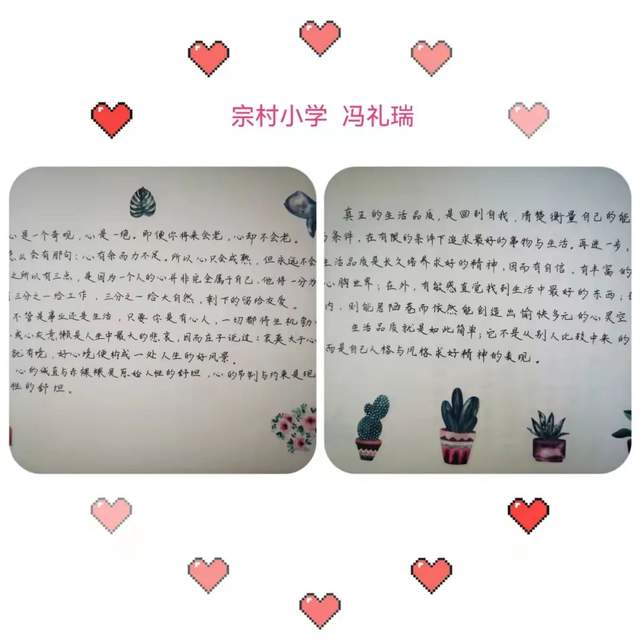 宗村小学 冯礼瑞
心是一个奇观,心是一绝。即便你将来会老,心却不会老。
么会有那句:心有余而力不足。所以心只会成熟,但永远不会
之所以有三点,是因为一个人的心并非完全属于自己。他将一分为
三分之一给工作,三分之一给大自然,剩下的留给友度。
不管是事业还是生活,只要你是有心人,一切都将生机勃
或心灰意懒是人生中最大的悲哀,因而庄子说过:哀莫大于心
就有境,好心境便构成一处人生的好风景。
心的诚直与赤裸裸是原始人性的舒坦,心的节制与约束是现
性的舒坦。
真正的生活品质,是回到自我,清楚衡量自己的能
与条件,在有限的条件下追求最好的事物与生活。再进一步,
生活品质是长久培养求好的精神,因而有自信、有丰富的
心胸世界;在外,有敏感直觉找到生活中最好的东西,在
内,则能居陋巷而依然能创造出愉快多元的心灵空
生活品质就是如此简单;它不是从别人比较中来的
而是自己人格与风格求好精神的表现。